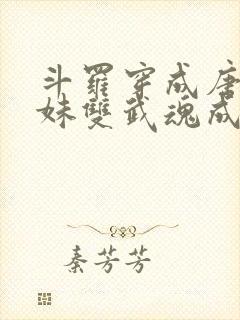 斗羅穿成唐
妹雙武魂成
秦芳芳